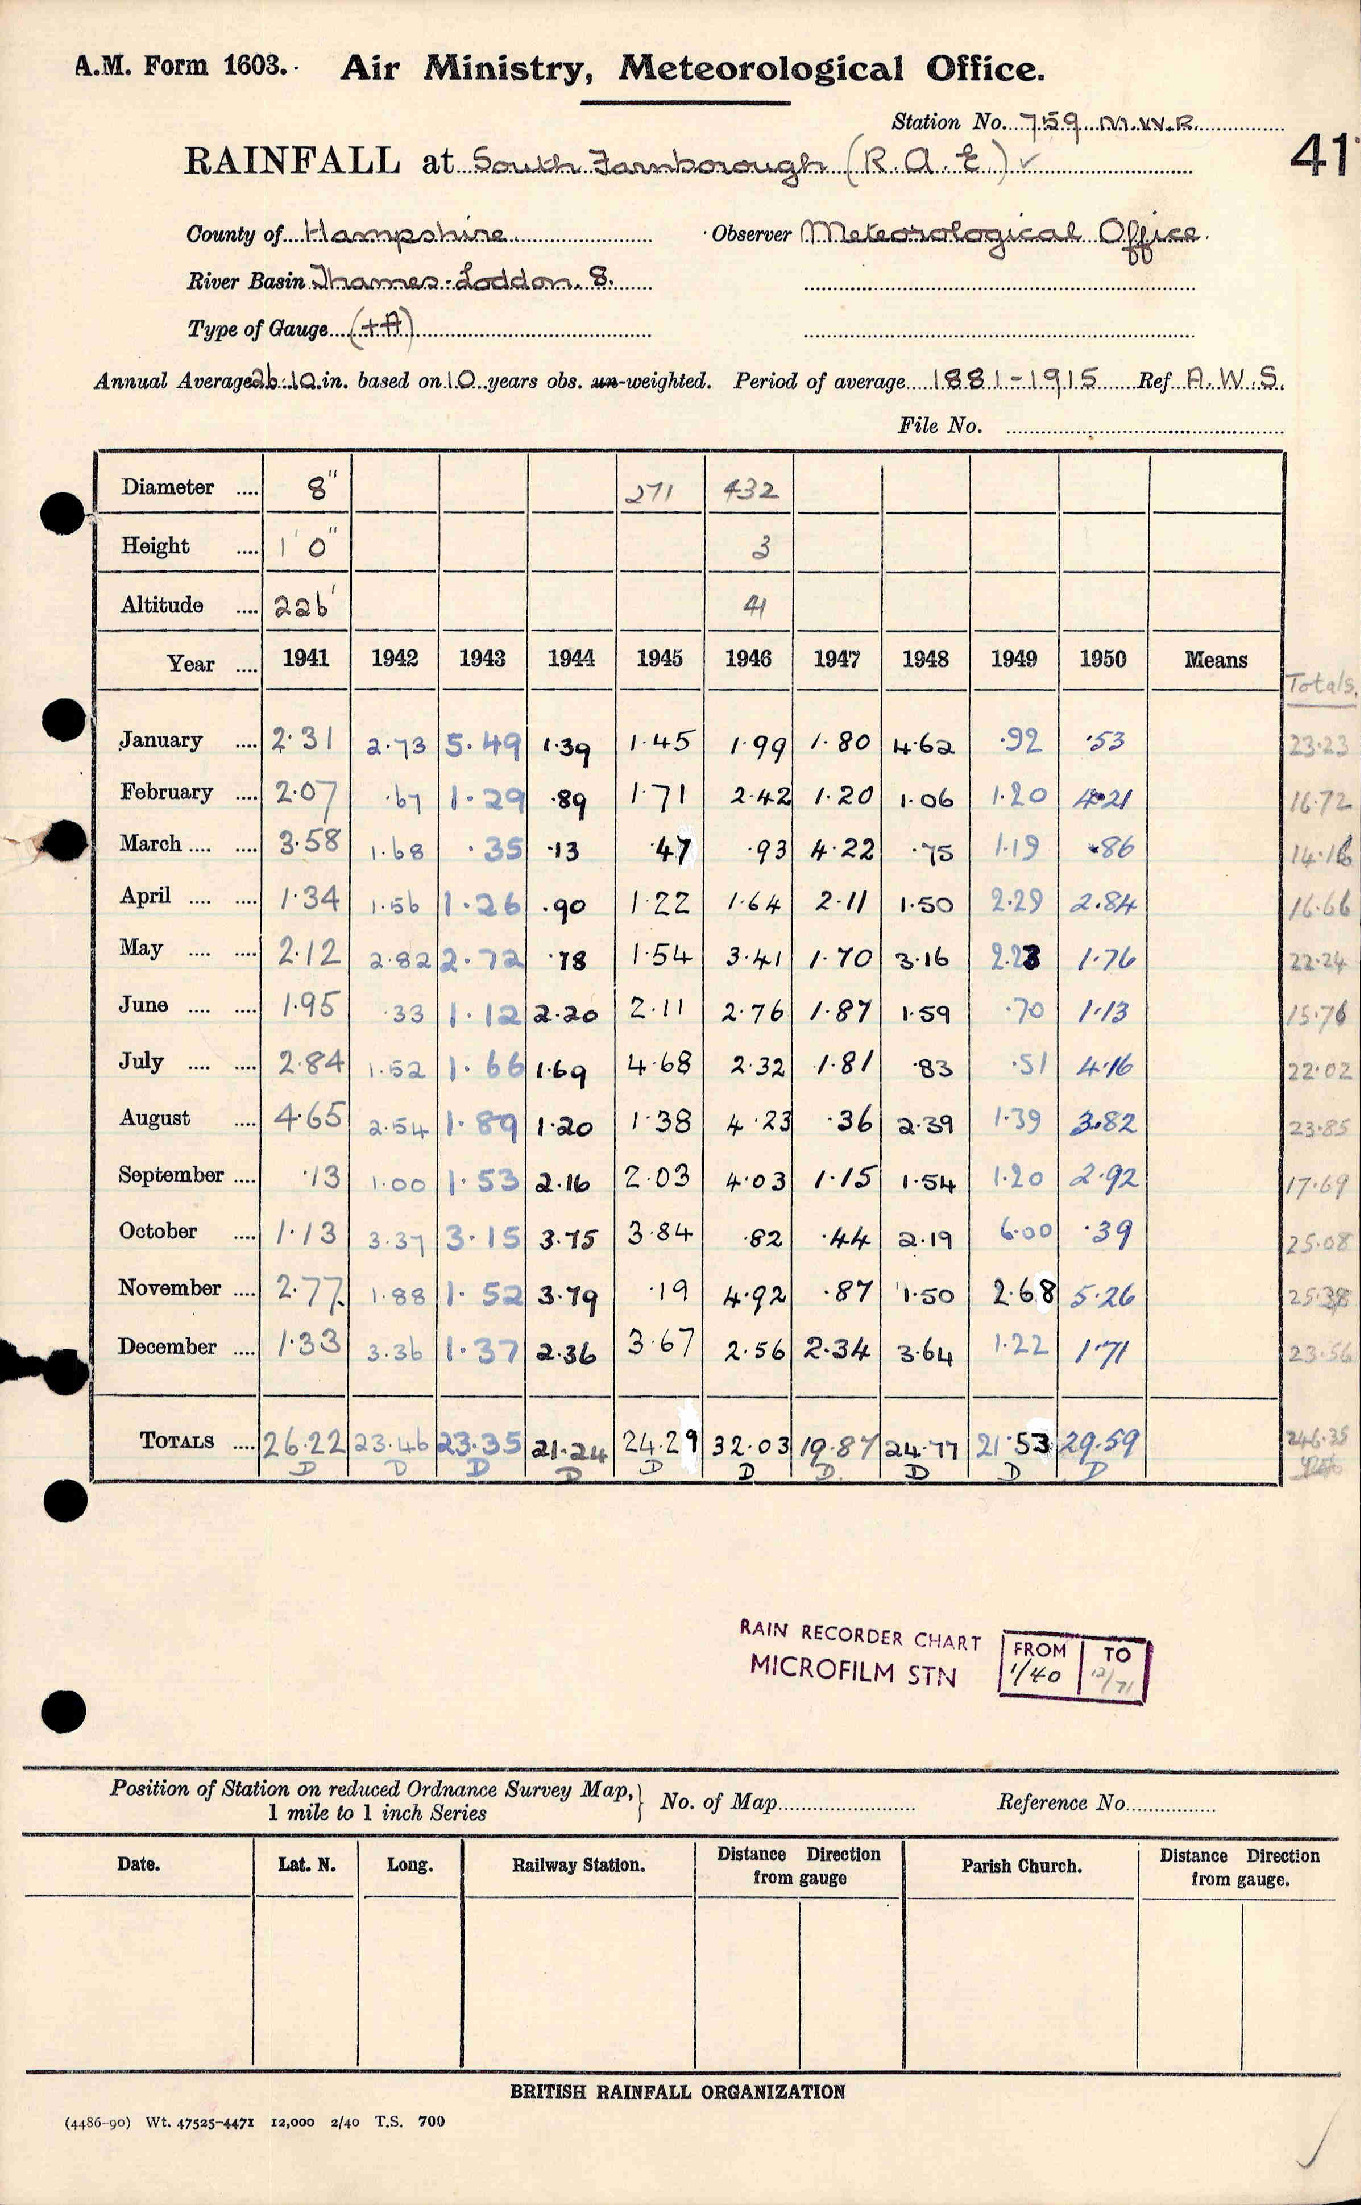 A.M. Form 1603. Air Ministry, Meteorological Office.
Station No. 759 M.W.R.
41
RAINFALL at South Farnborough (R.A.E.) ✓
County of Hampshire Observer Meteorological Office.
River Basin Thames-Loddon. 8.
Type of Gauge (+A)
Annual Average 26.10 in. based on 10 years obs. un-weighted. Period of average 1881-1915 Ref A.W.S.
File No.
Diameter .... 8" 271 432
Height .... 1' 0" 3
Altitude .... 226' 41
Year .... 1941 1942 1943 1944 1945 1946 1947 1948 1949 1950 Means Totals.
January .... 2.31 2.73 5.49 1.39 1.45 1.99 1.80 4.62 .92 .53 23.23
February .... 2.07 .67 1.29 .89 1.71 2.42 1.20 1.06 1.20 4.21 16.72
March .... .... 3.58 1.68 .35 .13 .47 .93 4.22 .75 1.19 .86 14.16
April .... .... 1.34 1.56 1.26 .90 1.22 1.64 2.11 1.50 2.29 2.84 16.66
May .... .... 2.12 2.82 2.72 .78 1.54 3.41 1.70 3.16 2.23 1.76 22.24
June .... .... 1.95 .33 1.12 2.20 2.11 2.76 1.87 1.59 .70 1.13 15.76
July .... .... 2.84 1.52 1.66 1.69 4.68 2.32 1.81 .83 .51 4.16 22.02
August .... 4.65 2.54 1.89 1.20 1.38 4.23 .36 2.39 1.39 3.82 23.85
September .... .13 1.00 1.53 2.16 2.03 4.03 1.15 1.54 1.20 2.92 17.69
October .... 1.13 3.37 3.15 3.75 3.84 .82 .44 2.19 6.00 .39 25.08
November .... 2.77 1.88 1.52 3.79 .19 4.92 .87 1.50 2.68 5.26 25.38
December .... 1.33 3.36 1.37 2.36 3.67 2.56 2.34 3.64 1.22 1.71 23.56
TOTALS .... 26.22 23.46 23.35 21.24 24.29 32.03 19.87 24.77 21.53 29.59 246.35
D D D D D D D D D D
RAIN RECORDER CHART
MICROFILM STN
FROM TO
1/40 12/71
Position of Station on reduced Ordnance Survey Map,
1 mile to 1 inch Series } No. of Map Reference No.
Date. Lat. N. Long. Railway Station. Distance Direction from gauge Parish Church. Distance Direction from gauge.
BRITISH RAINFALL ORGANIZATION
(4486-90) Wt. 47525-4471 12,000 2/40 T.S. 700